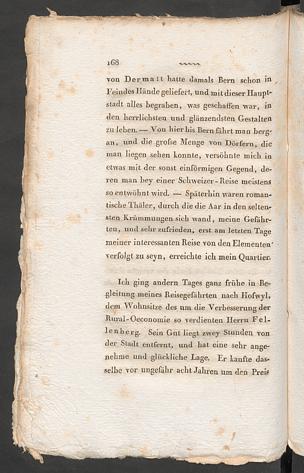 168
von Dermatt hatte damals Bern schon in
Feindes Hände geliefert, und mit dieser Haupt-
stadt alles begraben, was geschaffen war, in
den herrlichsten und glänzendsten Gestalten
zu leben. — Von hier bis Bern fährt man berg-
an, und die große Menge von Dörfern, die
man liegen sehen konnte, versöhnte mich in
etwas mit der sonst einförmigen Gegend, de-
ren man bey einer Schweizer-Reise meistens
so entwöhnt wird. — Späterhin waren roman-
tische Thäler, durch die die Aar in den selten-
sten Krümmungen sich wand, meine Gefähr-
ten, und sehr zufrieden, erst am letzten Tage
meiner interessanten Reise von den Elementen
verfolgt zu seyn, erreichte ich mein Quartier.
Ich ging andern Tages ganz frühe in Be-
gleitung meines Reisegefährten nach Hofwyl,
dem Wohnsitze des um die Verbesserung der
Rural-Oeconomie so verdienten Herrn Fel-
lenberg. Sein Gut liegt zwey Stunden von
der Stadt entfernt, und hat eine sehr ange-
nehme und glückliche Lage. Er kaufte das-
selbe vor ungefähr acht Jahren um den Preis